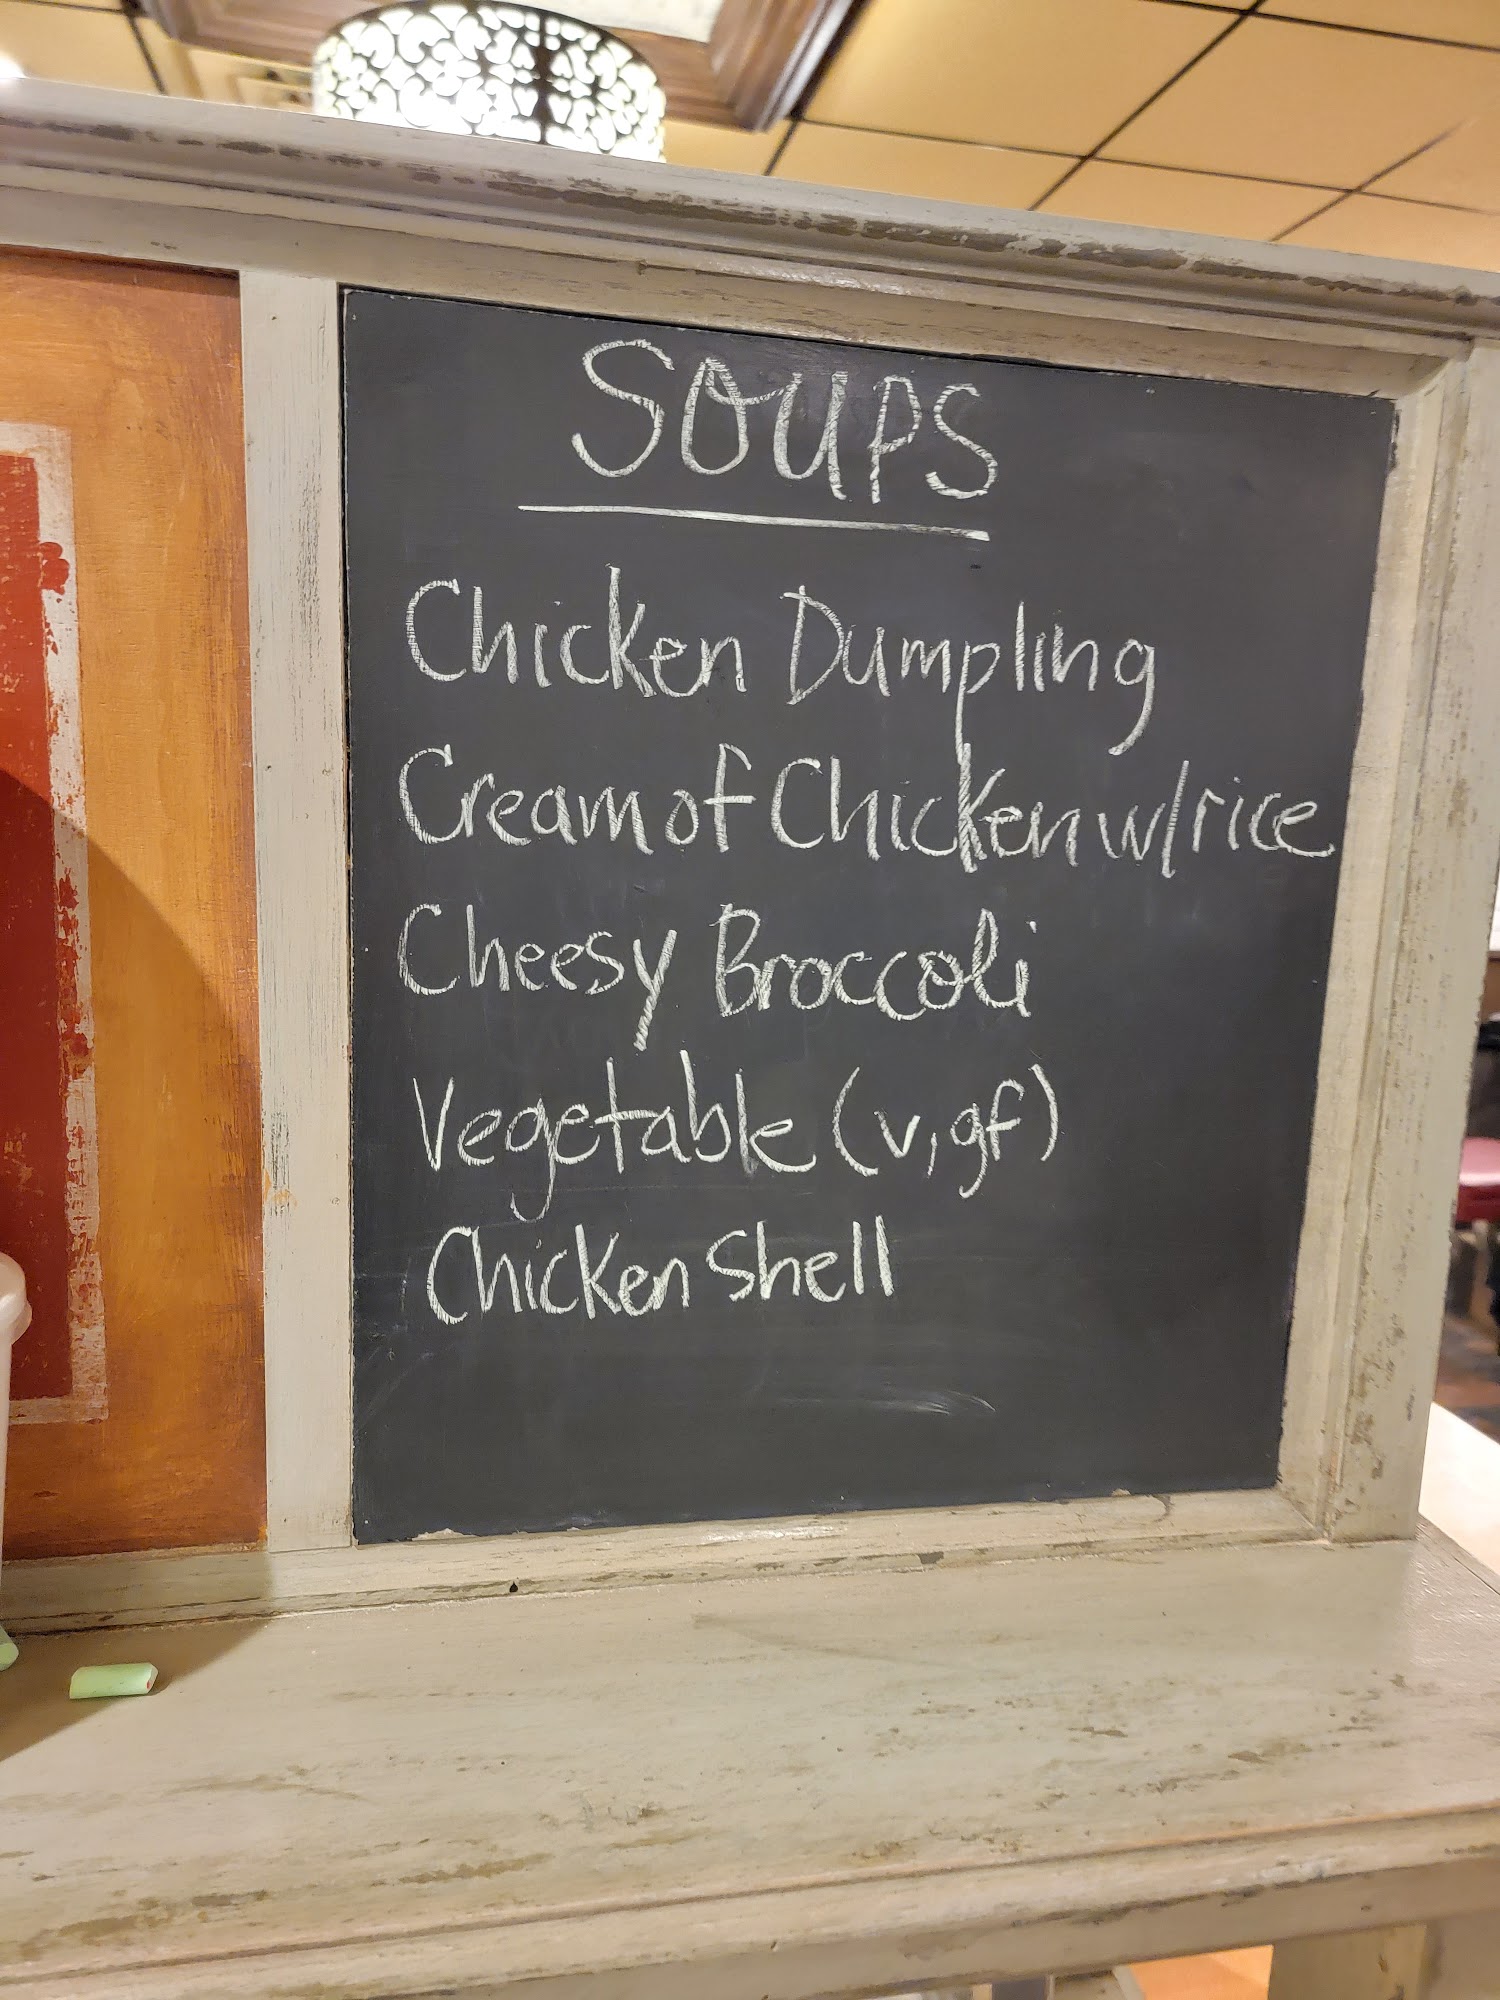 SOUPS
Chicken Dumpling
Cream of Chicken w/rice
Cheesy Broccoli
Vegetable (v, gf)
Chicken Shell